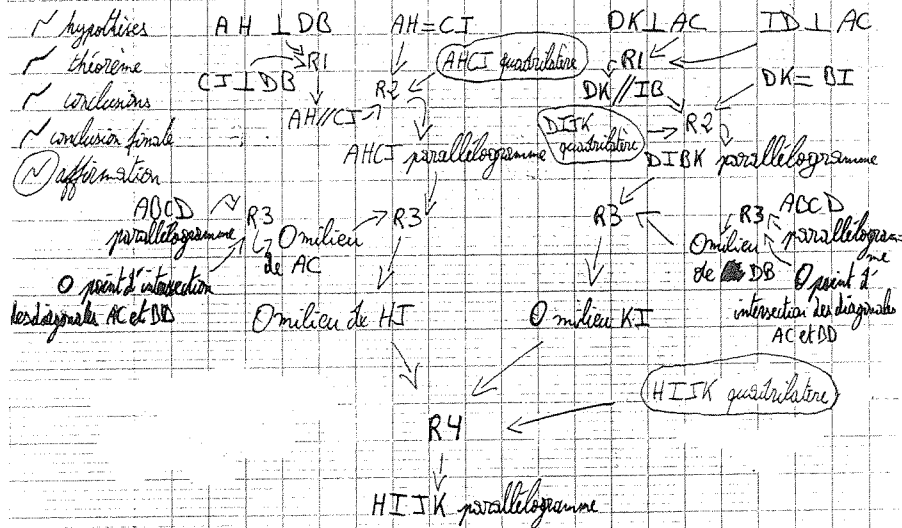 hypothèses
théorème
conclusions
conclusion finale
affirmation
AH ⊥ DB
R1
CJ ⊥ DB
AH // CJ
AH = CJ
AHCJ quadrilatère
R2
AHCJ parallélogramme
DK ⊥ AC
ID ⊥ AC
R1
DK // IB
DK = BI
DIJK quadrilatère
R2
DIBK parallélogramme
ABCD parallélogramme
R3
O milieu
de AC
O point d'intersection
des diagonales AC et BD
R3
O milieu de HJ
R3
O milieu KI
R3
ABCD
parallélogra-
mme
O milieu
de DB
O point d'
intersection des diagonales
AC et BD
HIJK quadrilatère
R4
HIJK parallélogramme